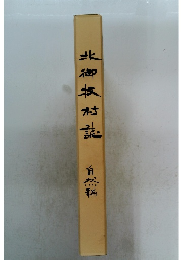 北御牧村誌
自然編